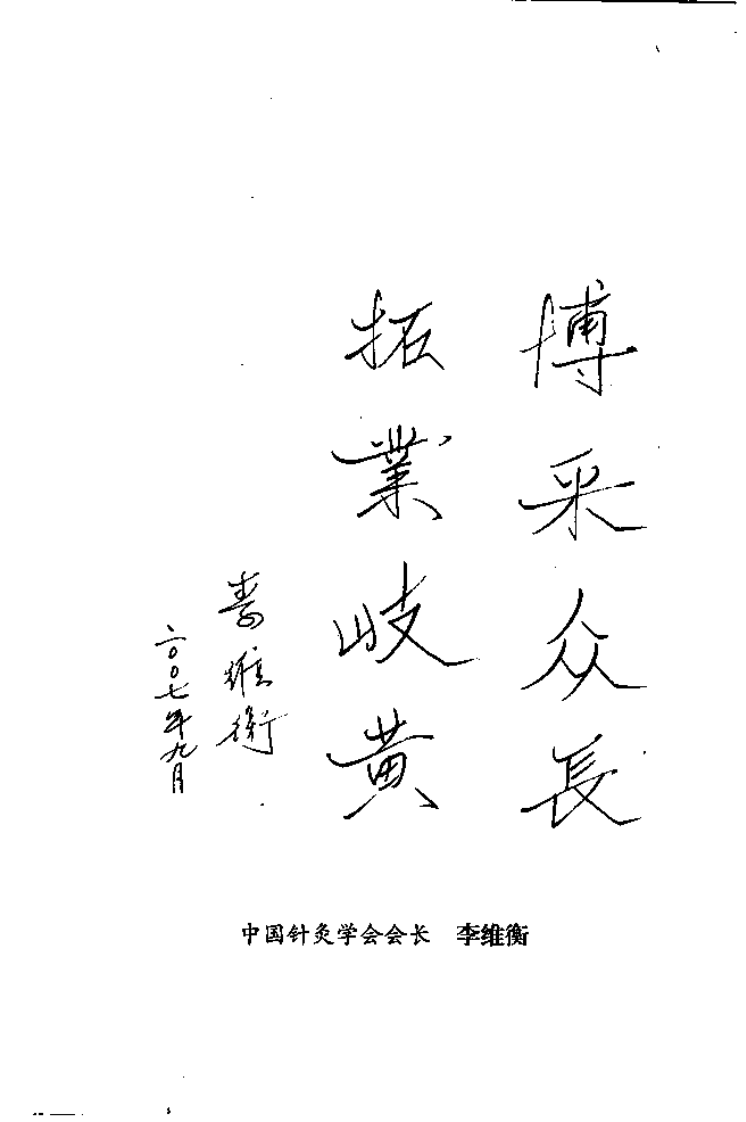 博采众長
拓業岐黄
李維衡
二〇〇七年九月
中国针灸学会会长 李维衡